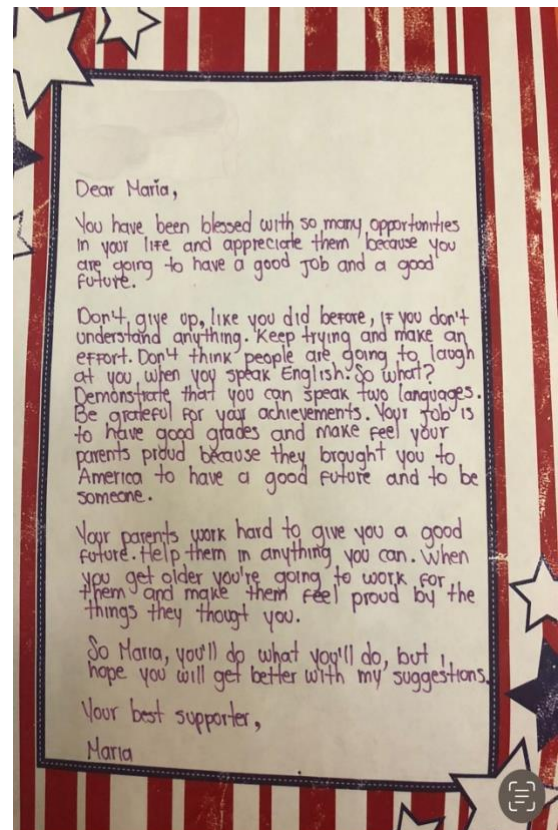 Dear María,
You have been blessed with so many opportunities
in your life and appreciate them because you
are going to have a good job and a good
future.
Don't give up, like you did before, if you don't
understand anything. Keep trying and make an
effort. Don't think people are going to laugh
at you when you speak English. So what?
Demonstrate that you can speak two languages.
Be grateful for your achievements. Your job is
to have good grades and make feel your
parents proud because they brought you to
America to have a good future and to be
someone.
Your parents work hard to give you a good
future. Help them in anything you can. When
you get older you're going to work for
them and make them feel proud by the
things they thougt you.
So Maria, you'll do what you'll do, but i
hope you will get better with my suggestions.
Your best supporter,
Maria